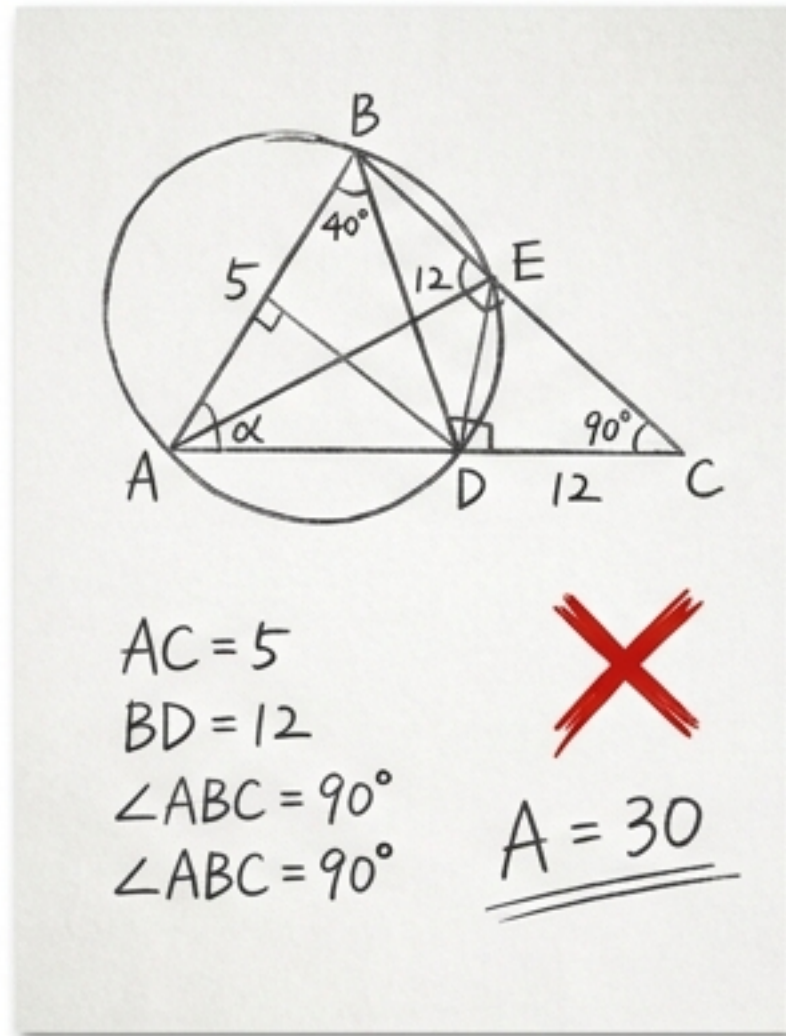 B
40°
5
12
E
α
90°
A
D
12
C
AC = 5
BD = 12
∠ABC = 90°
∠ABC = 90°
A = 30